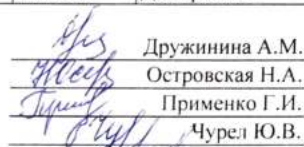 Дружинина А.М.
Островская Н.А.
Применко Г.И.
Чурел Ю.В.